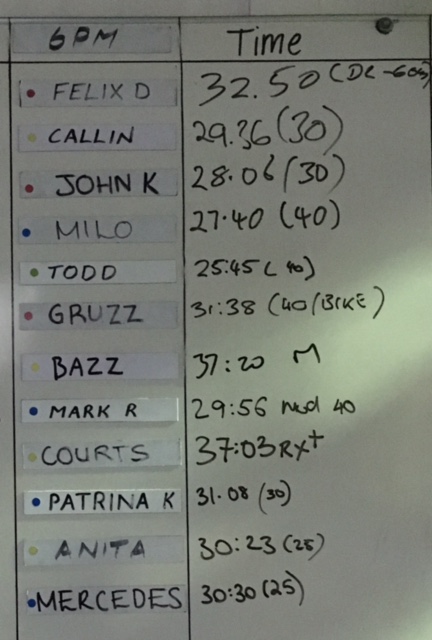 6PM Time
FELIX D 32.50 (DL-60s)
CALLIN 29.36 (30)
JOHN K 28.06 (30)
MILO 27.40 (40)
TODD 25:45 (40)
GRUZZ 31:38 (40/BIKE)
BAZZ 37:20 M
MARK R 29:56 mod 40
COURTS 37:03 RX+
PATRINA K 31.08 (30)
ANITA 30:23 (25)
MERCEDES 30:30 (25)